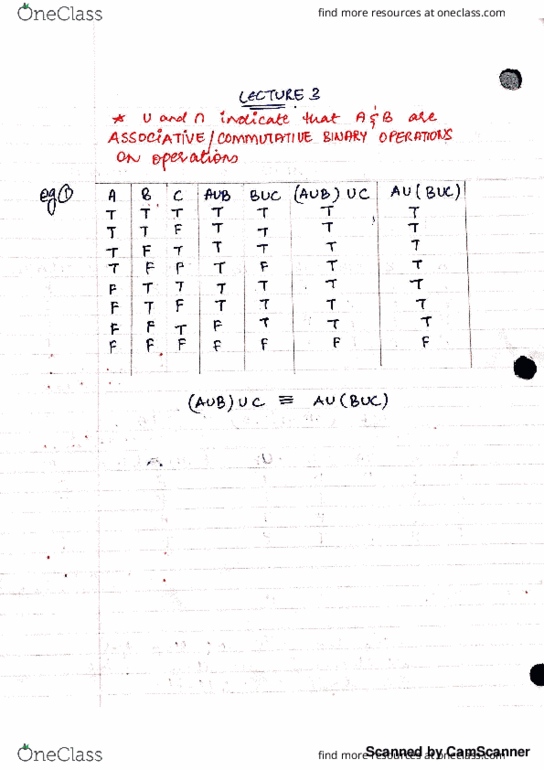 OneClass find more resources at oneclass.com
LECTURE 3
* U and ∩ indicate that A & B are
ASSOCIATIVE / COMMUTATIVE BINARY OPERATIONS
on operations
eg ① A B C AUB BUC (AUB) UC AU (BUC)
T T T T T T T
T T F T T T T
T F T T T T T
T F F T F T T
F T T T T T T
F T F T T T T
F F T F T T T
F F F F F F F
(AUB) U C ≡ AU (BUC)
OneClass find more resources at oneclass.com
Scanned by CamScanner